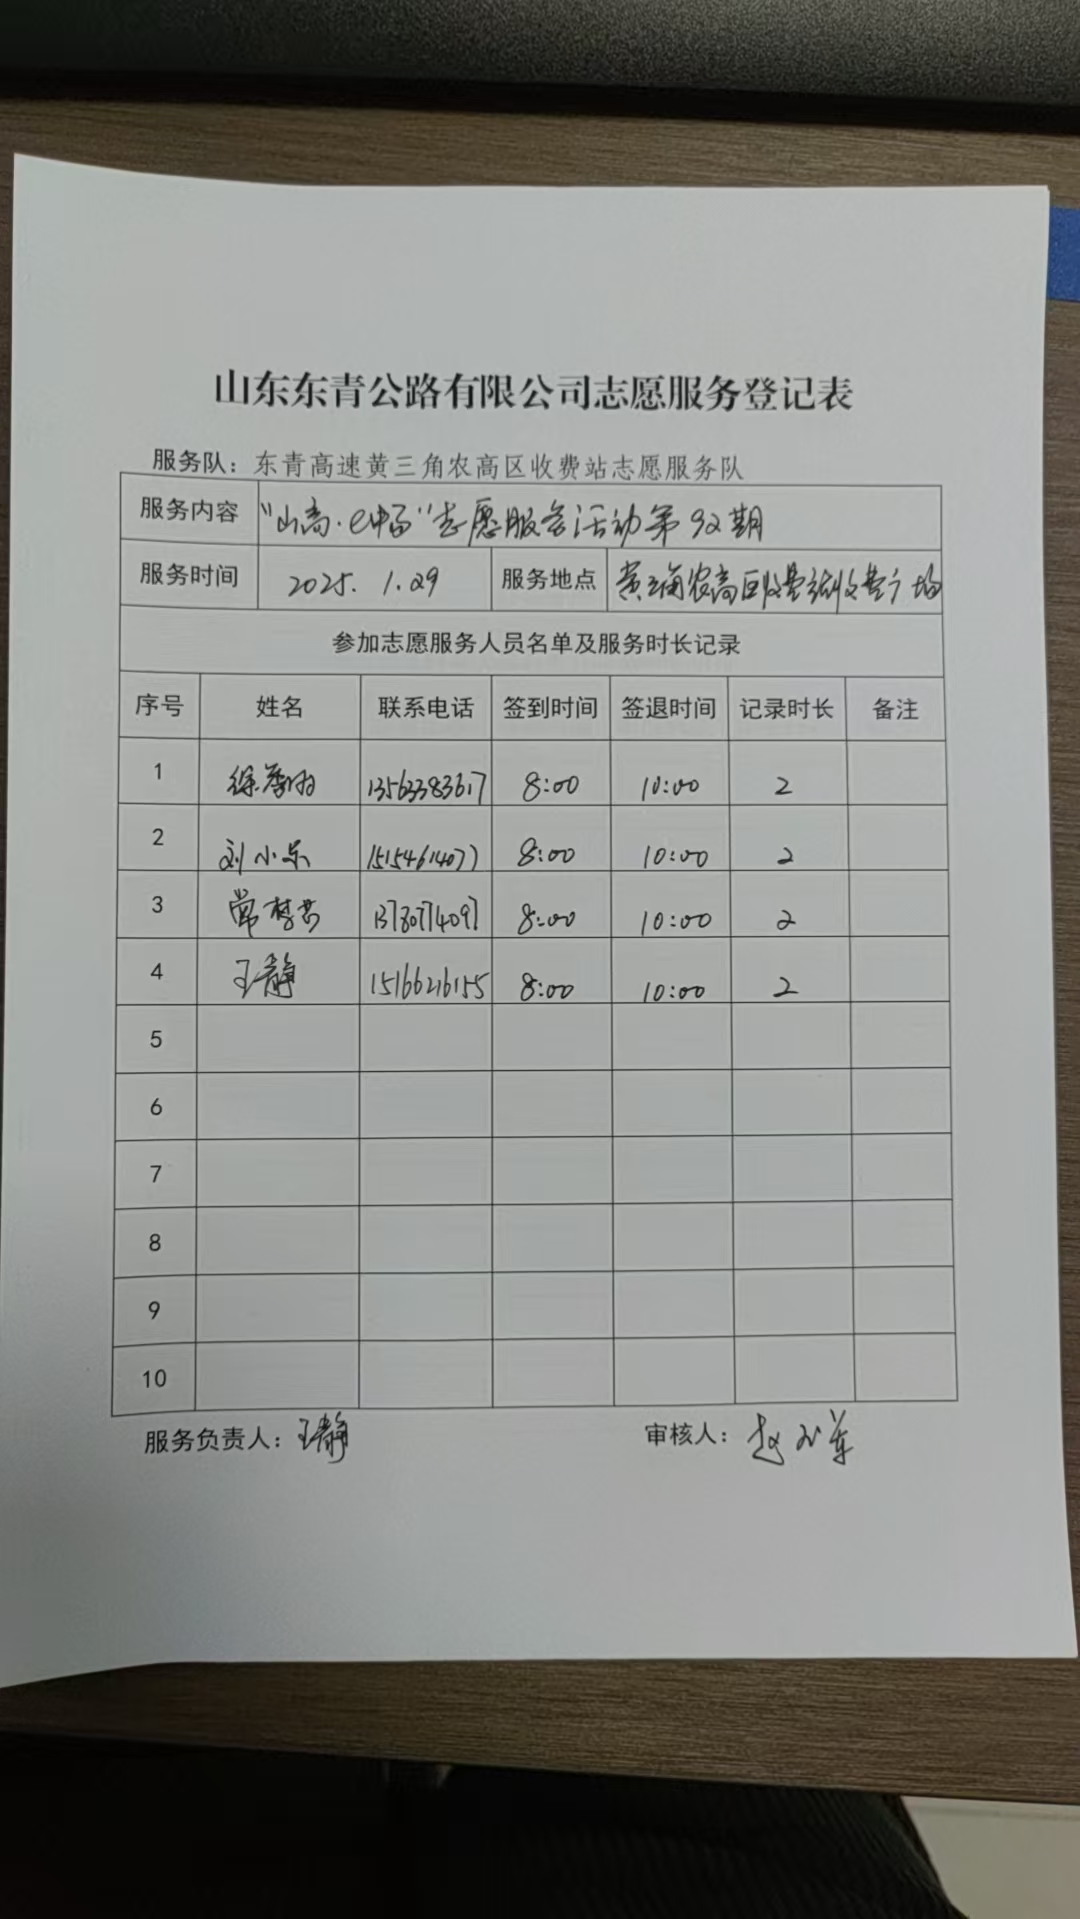 山东东青公路有限公司志愿服务登记表
服务队：东青高速黄三角农高区收费站志愿服务队
服务内容 “山高·e中畅”志愿服务活动第92期
服务时间 2025. 1.29 服务地点 黄三角农高区收费站收费广场
参加志愿服务人员名单及服务时长记录
序号 姓名 联系电话 签到时间 签退时间 记录时长 备注
1 徐 13563383617 8:00 10:00 2
2 刘小乐 15154614077 8:00 10:00 2
3 常梦芸 13780774097 8:00 10:00 2
4 王静 15166216155 8:00 10:00 2
5
6
7
8
9
10
服务负责人：王静 审核人：赵